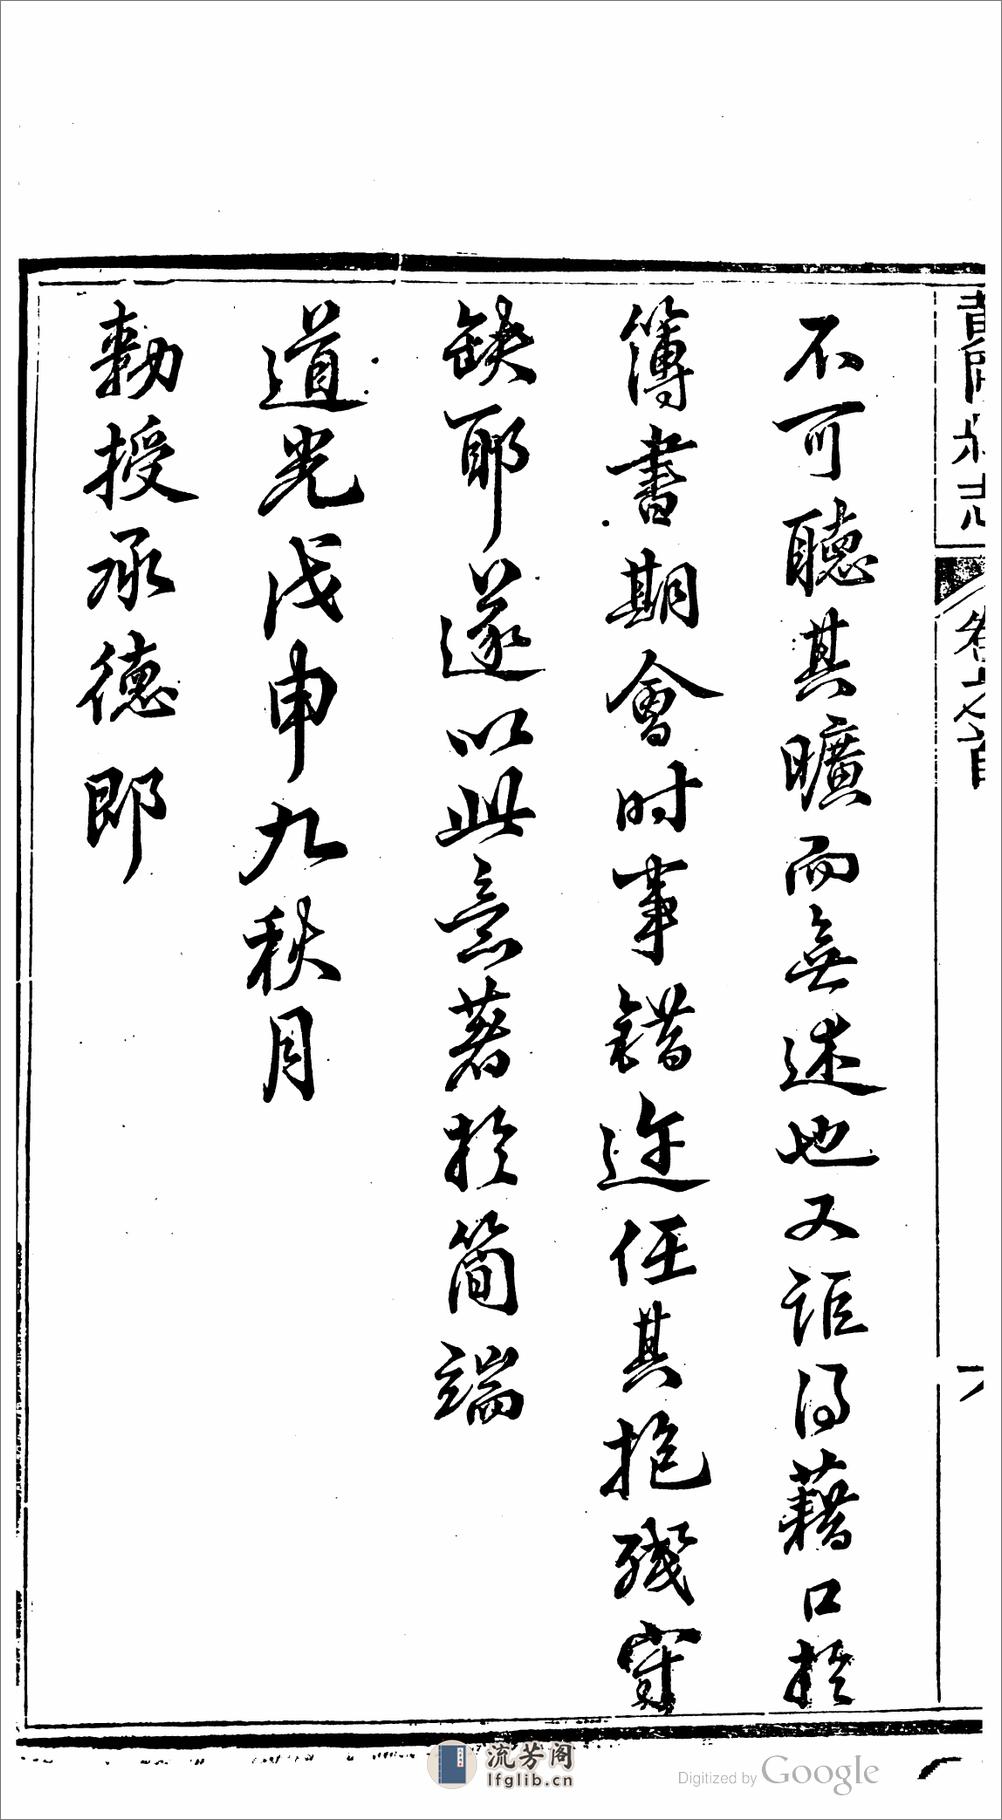 不可聽其曠而無述也又詎得藉口於
簿書期會時事錯迕任其抱殘守
缺耶遂以此意著於簡端
道光戊申九秋月
勅授承德郎
卷之首
流芳阁
lfglib.cn
Digitized by Google